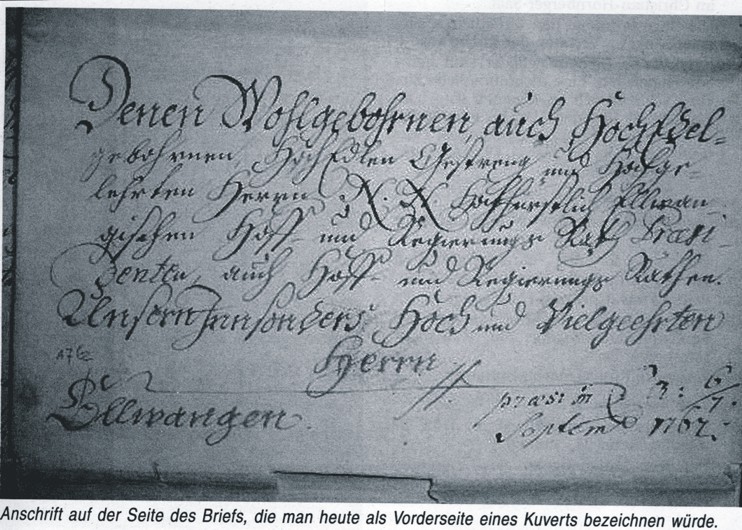 Denen Wohlgebohrnen, auch HochEdel-
gebohrnen, HochEdlen Gestreng und Hochge-
lehrten Herrn N. N. Hochfürstlich Ellwan-
gischen Hoff- und Regierungs Rath Præsi-
denten, auch Hoff- und Regierungs Räthen.
Unsern Insonders Hoch und Vielgeehrten
Herrn
1762
Ellwangen.
præs: 6/7:
Septem 1762:
Anschrift auf der Seite des Briefs, die man heute als Vorderseite eines Kuverts bezeichnen würde.